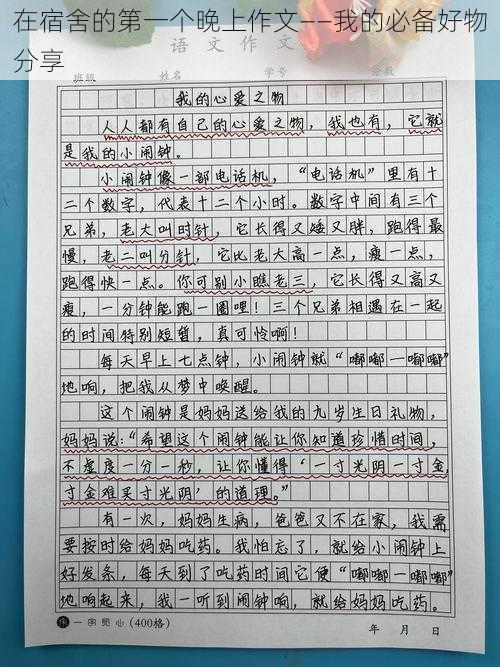 在宿舍的第一个晚上作文——我的必备好物
分享
语文作文
班级 姓名 学号 分数
我的心爱之物
人人都有自己的心爱之物，我也有，它就
是我的小闹钟。
小闹钟像一部电话机，“电话机”里有十
二个数字，代表十二个小时。数字中间有三个
兄弟，老大叫时针，它长得又矮又胖，跑得最
慢，老二叫分针，它比老大高一点，瘦一点，
跑得快一点。你可别小瞧老三，它长得又高又
瘦，一分钟能跑一圈哩！三个兄弟相遇在一起
的时间特别短暂，真可怜啊！
每天早上七点钟，小闹钟就“嘟嘟一嘟嘟”
地响，把我从梦中唤醒。
这个闹钟是妈妈送给我的九岁生日礼物，
妈妈说：“希望这个闹钟能让你知道珍惜时间，
不虚度一分一秒，让你懂得‘一寸光阴一寸金，
寸金难买寸光阴’的道理。”
有一次，妈妈生病，爸爸又不在家，我需
要按时给妈妈吃药。我怕忘了，就给小闹钟上
好发条，每天到了吃药时间它便“嘟嘟一嘟嘟”
地响起来，我一听到闹钟响，就给妈妈吃药。
一字见心(400格)
年 月 日